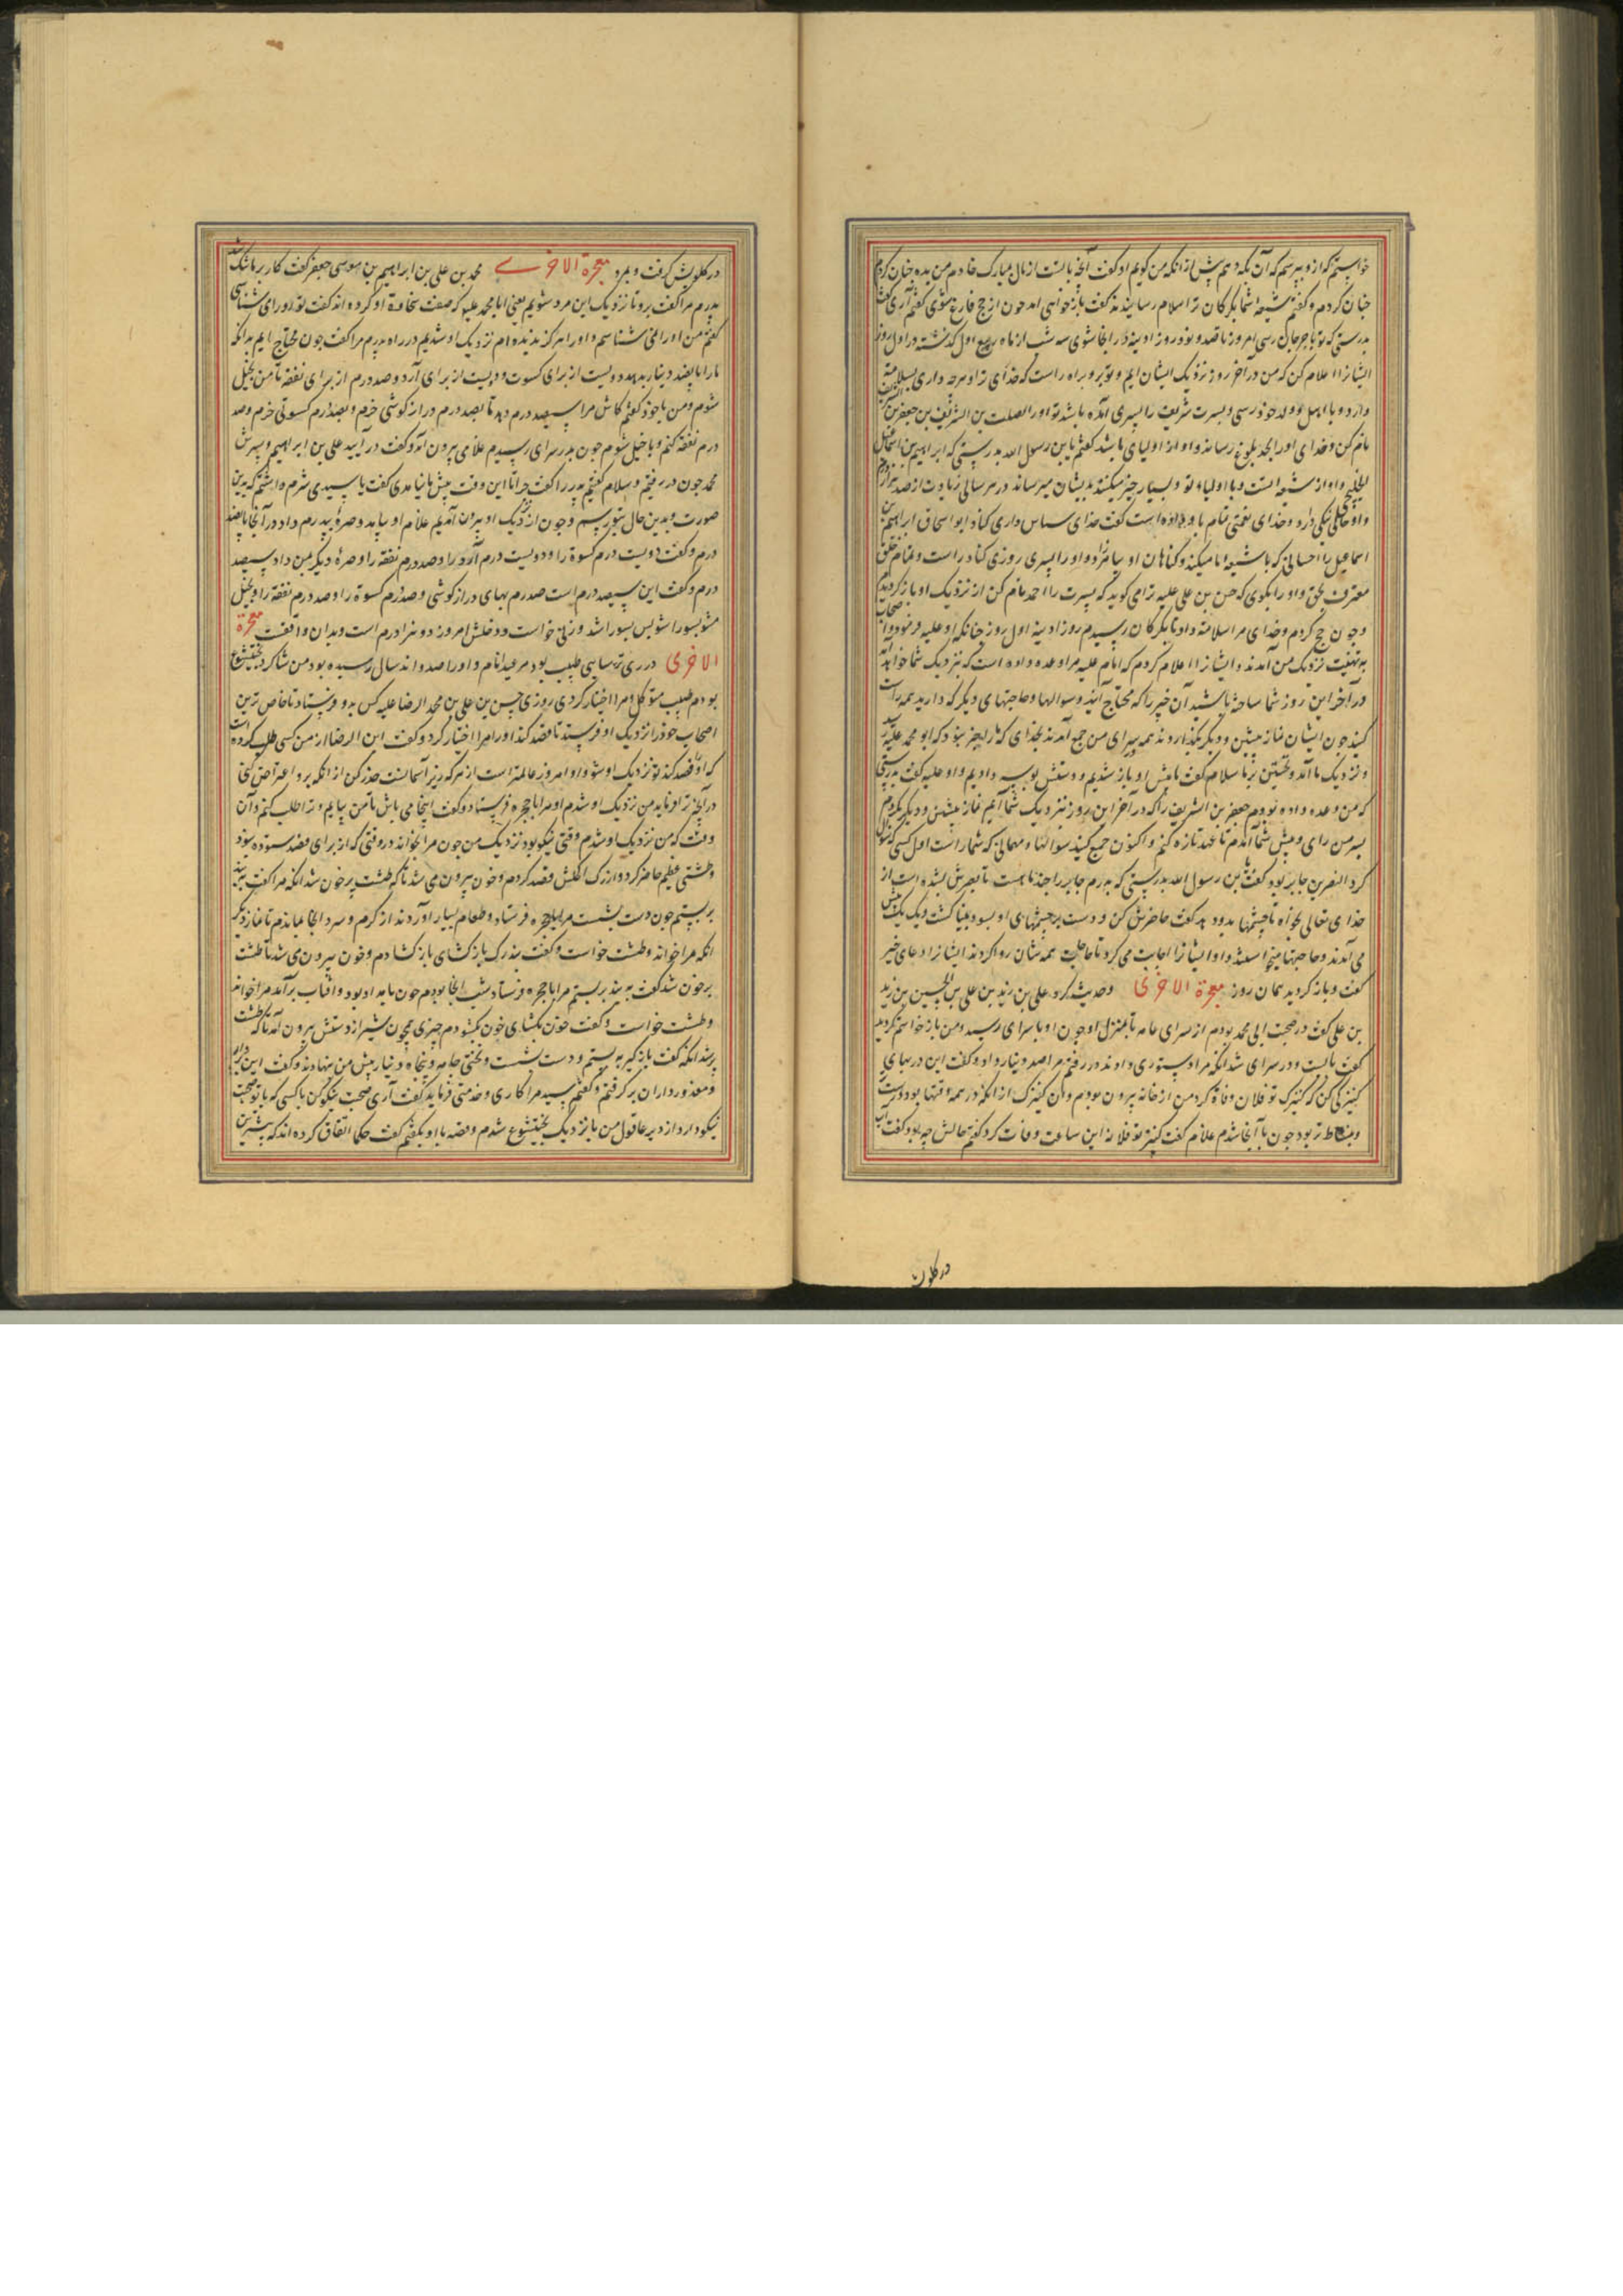 خواستم که از و بپرسم که آن بکه دهم پیش از آنکه من گویم او گفت آنچه با تست از مال بمبارک خادم من بده چنان کردم
چنان کردم و گفتم شیعه شما بگرگان ترا سلام رسانیدند گفت باز خواهی آمد چون از حج فارغ شوی گفتم آری گفت
بدرستی که تو با جرجان رسی امروز تا صد و نود روز آدینه در آنجا شوی سه شب از ماه ربیع اول گذشته در اول روز
ایشانرا اعلام کن که من در آخر روز نزدیک ایشان آیم و تو برو براه راست که خدای ترا و هرچه داری بسلامت
وارد و با اهل و ولد خود رسی و پسرت شریف را پسری آمده باشد تو اورا الصلت بن الشریف بن جعفر بن الشریف
نام کن و خدای اورا بحد بلوغ رساند و او از اولیای ما باشد گفتم یابن رسول الله بدرستی که ابراهیم بن اسماعیل
الخلیجی و او از شیعه تست و با اولیاء تو بسیار چیز میکند بدیشان میرساند در هر سالی زیادت از صد هزار درم
و او حالی نیکی دارد و خدای نعمتی تمام باو داده است گفت خدای سپاس داری کناد ابو اسحاق ابراهیم بن
اسماعیل را احسانی که با شیعه ما میکند و گناهان او بیامرزاد و او را پسری روزی کناد راست و تمام خلق
معترف بحق و او را بگوی که حسن بن علی علیه ترا می گوید که پسرت را احمد نام کن از نزدیک او باز گردیدم
و چون حج کردم و خدای مرا سلامة داد تا بگرگان رسیدم روز آدینه اول روز چنانکه او علیه فرموده و اصحاب
به تهنیت نزدیک من آمدند و ایشانرا اعلام کردم که امام علیه مرا وعده داده است که نزدیک شما خواهد آمد
در آخر این روز شما ساخته باشید آن چیز را که محتاج آنید و سوالها و حاجتهای دیگر که دارید همه راست
کنید چون ایشان نماز پیشین و دیگر بگذاردند همه بسرای من جمع آمدند بخدای که ما را خبر نبود که ابو محمد علیه
و نزدیک ما آمد و نخستین بر ما سلام گفت ما پیش او باز شدیم و دستش بوسه دادیم و او علیه گفت بدرستی
که من وعده داده بودم جعفر بن الشریف را که در آخر این روز نزدیک شما آیم نماز پیشین و دیگر بکردم
بسر من رای و پیش شما آمدم تا عهد تازه کنم و اکنون جمع کنید سوالها و مهماتی که شما راست اول کسی که سوال
کرد النضر بن جابر بود گفت یابن رسول الله بدرستی که پسرم جابر را چند ماهست تا بصرش بشده است از
خدای تعالی بخواه تا چشمها بدو دهد گفت حاضرش کن و دست بر چشمهای او بسود بینا گشت و یک یک پیش
می آمدند و حاجتها میخواستند و او ایشانرا اجابت می کرد تا حاجت همه شان روا کردند ایشانرا دعای خیر
گفت و باز گردید همان روز معجزة الاخری و حدیث کرد علی بن زید بن علی بن الحسین بن زید
بن علی گفت در صحبت ابی محمد بودم از سرای عامه تا بمنزل او چون او با سرای رسید و من باز خواستم گردید
گفت بایست و در سرای شد آنکه مرا دستوری دادند در رفتم مرا صد دینار داد و گفت این در بهای
کنیزکی کن که کنیزک تو فلان وفاة کرد من از خانه بیرون بودم و آن کنیزک از آنکه در همه وقتها بود درست تر
و بنشاط تر بود چون با آنجا شدم غلام گفت کنیز تو فلانه این ساعت وفات کرد گفتم حالش چه بود گفت آب
در کلوش
در کلوش گرفت و بمرد معجزة الاخری محمد بن علی بن ابراهیم بن موسی جعفر گفت کار بر ما تنگ شد
پدرم مرا گفت برو تا نزدیک این مرد شویم یعنی ابا محمد علیه که صفت سخاوة او کرده اند گفت تو اورا می شناسی
گفتم من اورا نمی شناسم و اورا هرگز ندیده ام نزدیک او شدیم در راه پدرم مرا گفت چون محتاج ایم بدانکه
مارا پانصد دینار بدهد دویست از برای کسوت و دویست از برای آرد و صد درم از برای نفقه تا من بجبل
شوم و من با خود گفتم کاش مرا سیصد درم دهد تا بصد درم دراز گوشی خرم و بصد درم کسوتی خرم و صد
درم نفقه کنم و با جبل شوم چون بدر سرای رسیدم غلامی بیرون آمد و گفت در آیید علی بن ابراهیم و پسرش
محمد چون در رفتیم و سلام گفتیم پدر را گفت چرا تا این وقت پیش ما نیامدی گفت یا سیدی شرم داشتم که بدین
صورت و بدین حال بتو رسم و چون از نزدیک او بیرون آمدیم غلام او بیامد و صرهٔ بپدرم داد در آنجا پانصد
درم و گفت دویست درم کسوة را و دویست درم آرد را و صد درم نفقه را و صرهٔ دیگر بمن داد سیصد
درم و گفت این سیصد درم است صد درم بهای دراز گوشی و صد درم کسوة را و صد درم نفقه را و بجبل
مشو بسورا شو پس بسورا شد و زنی خواست و دخلش امروز دو هزار درم است و بدان واقفت معجزة
الاخری در ری ترسایی طبیب بود مر عبدا نام و او را صد و اند سال رسیده بود من شاگرد بختیشوع
بودم طبیب متوکل و مرا اختیار کردی روزی حسن بن علی بن محمد الرضا علیه کس بدو فرستاد تا خاص ترین
اصحاب خود را نزدیک او فرستد تا فصد کند اورا مرا اختیار کرد و گفت ابن الرضا از من کسی طلب کرده است
که اورا فصد کند تو نزدیک او شو و او امروز عالمتر است از هر که زیر آسمانست حذر کن از آنکه برو اعتراض کنی
در آنچه ترا فرماید من نزدیک او شدم او مرا با حجره فرستاد و گفت اینجا می باش تا من بیایم و ترا طلب کنم و آن
وقت که من نزدیک او شدم وقتی نیکو بود نزدیک من چون مرا بخواند در وقتی که از برای فصد ستوده نبود
و طشتی عظیم حاضر کرد و از رگ اکحلش فصد کردم و خون بیرون می شد تا که طشت پر خون شد آنکه مرا گفت ببند
بر بستم چون دست بشست مرا با حجره فرستاد و طعام بسیار آوردند از گرم و سرد آنجا بماندم تا نماز دیگر
آنکه مرا خواند و طشت خواست و گفت بند رگ باز گشای باز گشادم و خون بیرون می شد تا طشت
پر خون شد گفت ببند بربستم مرا با حجره فرستاد شب آنجا بودم چون بامداد بود و آفتاب برآمد مرا خواند
و طشت خواست و گفت خون بگشای خون بگشودم چیزی همچون شیر از دستش بیرون آمد تا که طشت
پر شد آنکه گفت باز گیر ببستم و دست بشست و تختی جامه و پنجاه دینار پیش من بنهادند و گفت این بردار
و معذور دار آن بر گرفتم و گفتم سید مرا کاری و خدمتی فرماید گفت آری صحبت نیکو کن با کسی که با تو صحبت
نیکو دارد از دیر عاقول من با نزدیک بختیشوع شدم و قصه با او بگفتم گفت حکما اتفاق کرده اند که بیشترین